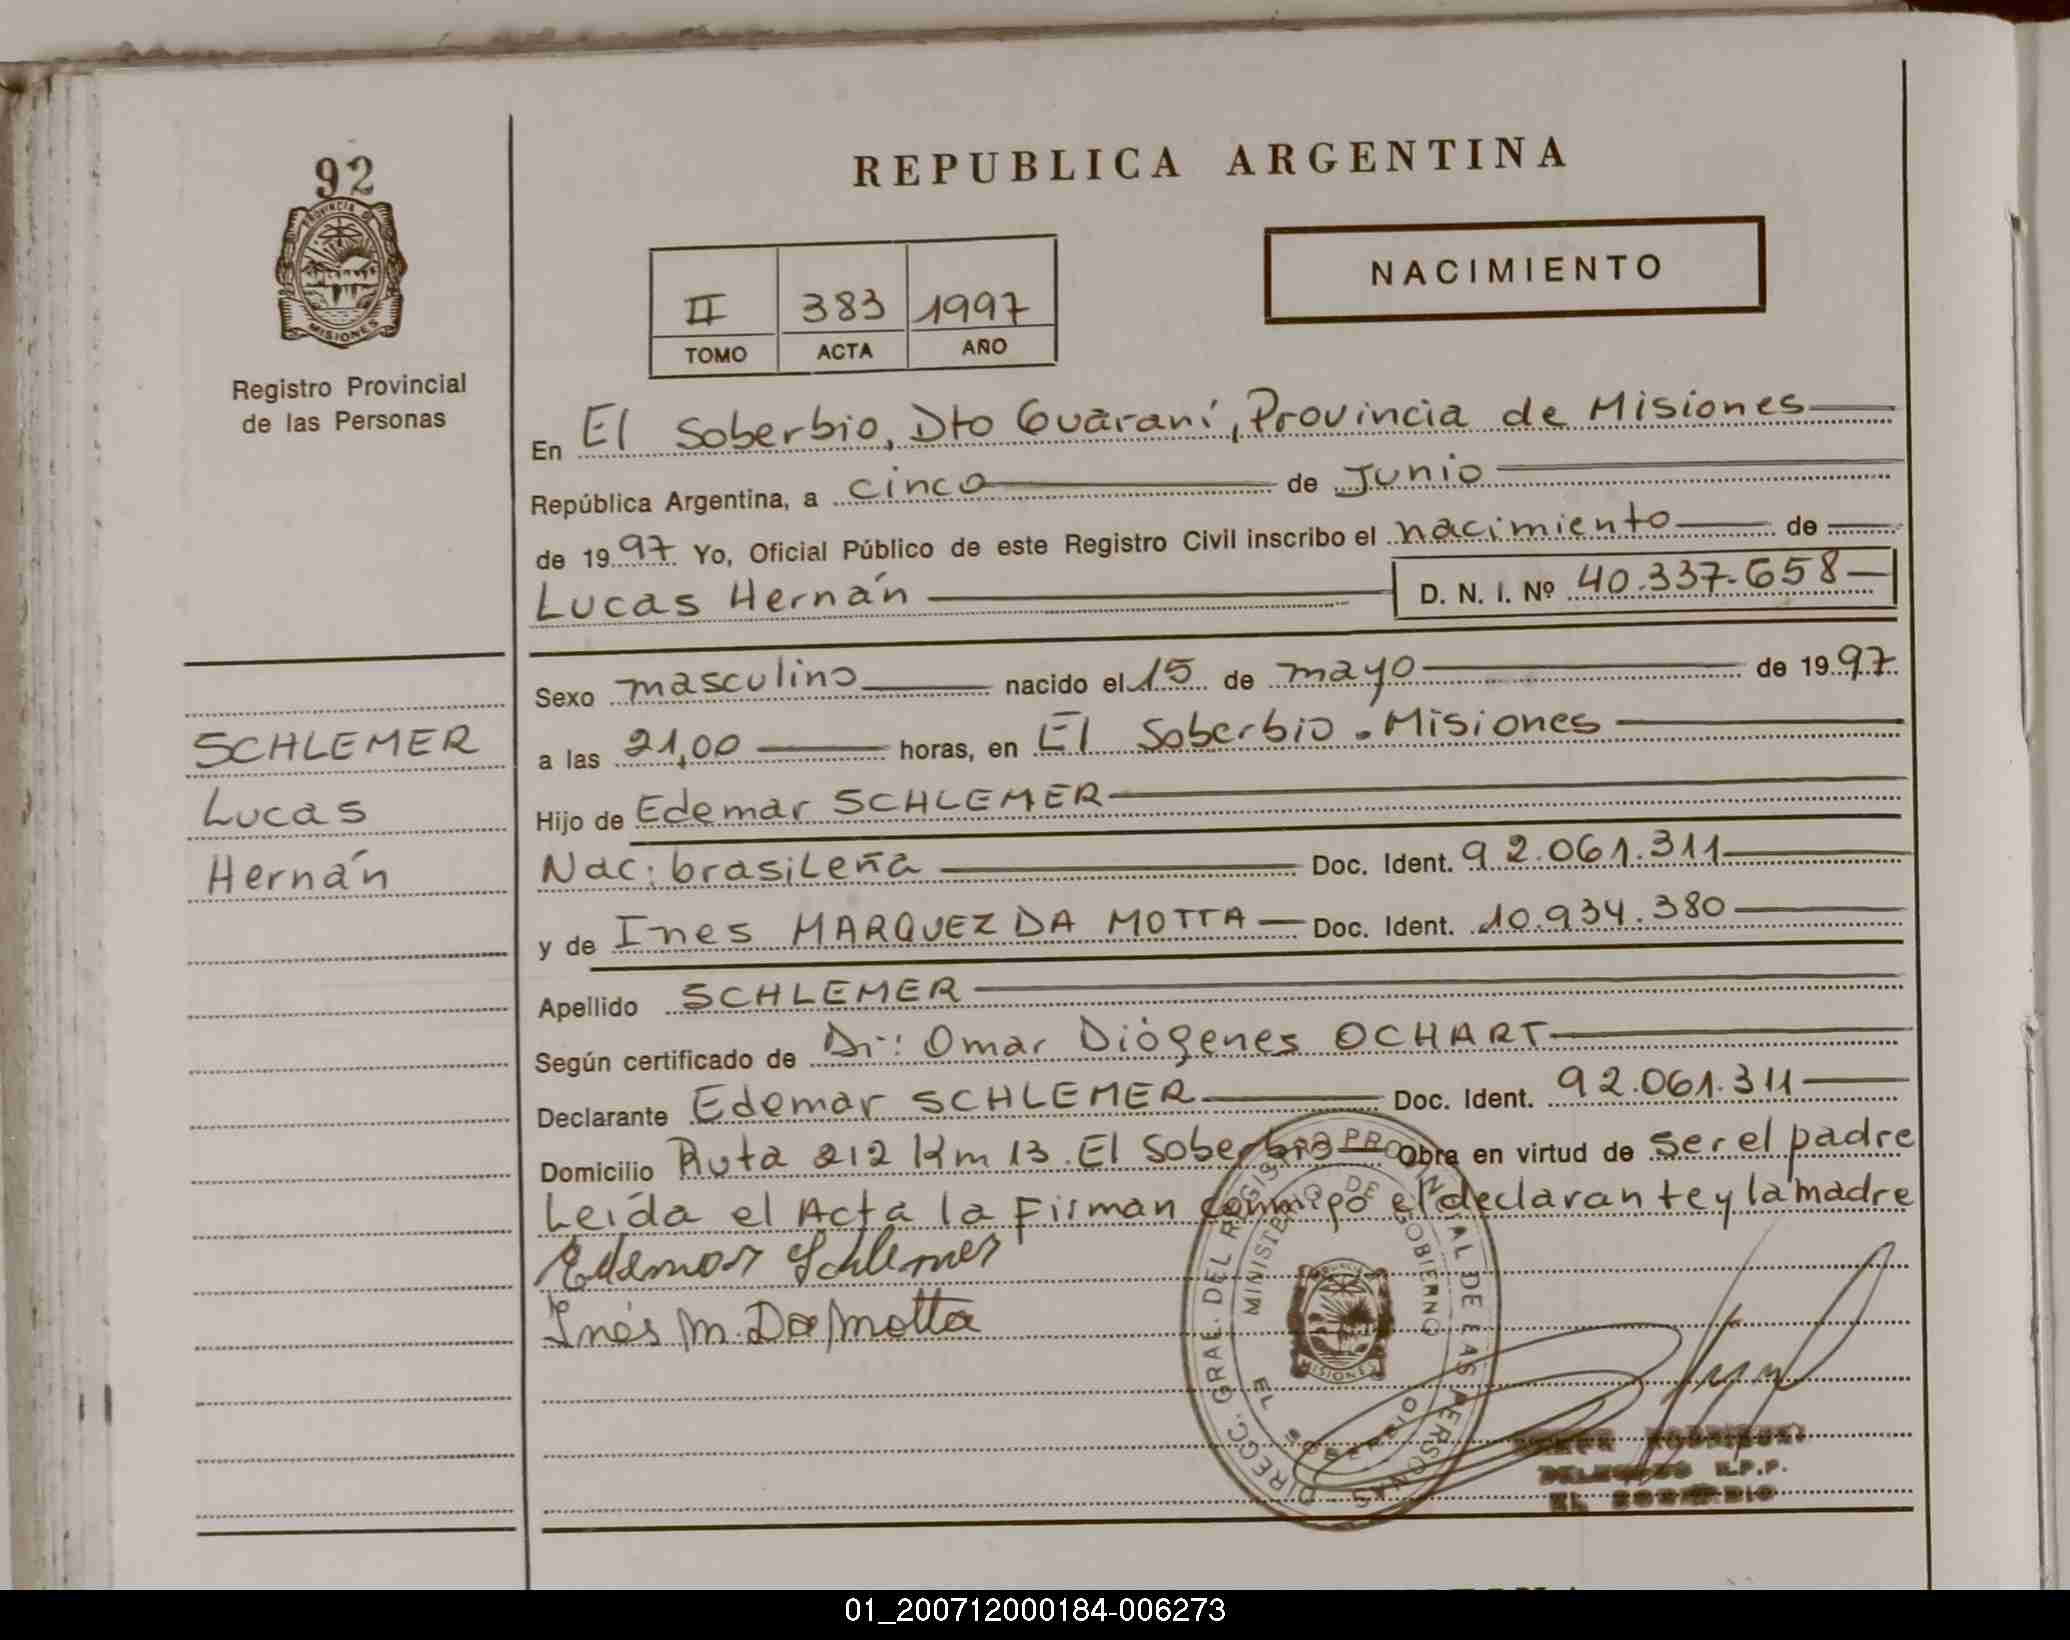 92
PROVINCIA DE
MISIONES
Registro Provincial
de las Personas
SCHLEMER
Lucas
Hernán
REPUBLICA ARGENTINA
NACIMIENTO
II 383 1997
TOMO ACTA AÑO
En El Soberbio, Dto Guaraní, Provincia de Misiones
República Argentina, a cinco de Junio
de 1997 Yo, Oficial Público de este Registro Civil inscribo el nacimiento de
Lucas Hernán D. N. I. Nº 40.337.658
Sexo masculino nacido el 15 de mayo de 1997
a las 21,00 horas, en El Soberbio - Misiones
Hijo de Edemar SCHLEMER
Nac: brasileña Doc. Ident. 92.061.311
y de Ines MARQUEZ DA MOTTA Doc. Ident. 10.934.380
Apellido SCHLEMER
Según certificado de Dr: Omar Diógenes OCHART
Declarante Edemar SCHLEMER Doc. Ident. 92.061.311
Domicilio Ruta 212 Km 13. El Soberbio Obra en virtud de ser el padre
Leída el Acta la Firman conmigo el declarante y la madre
Edemar Schlemer
Inés M. Da Motta
DIRECC. GRAL. DEL REGISTRO PROVINCIAL DE LAS PERSONAS
MINISTERIO DE GOBIERNO
EL SOBERBIO
MISIONES
DELEGADO R.P.P.
EL SOBERBIO
01_200712000184-006273